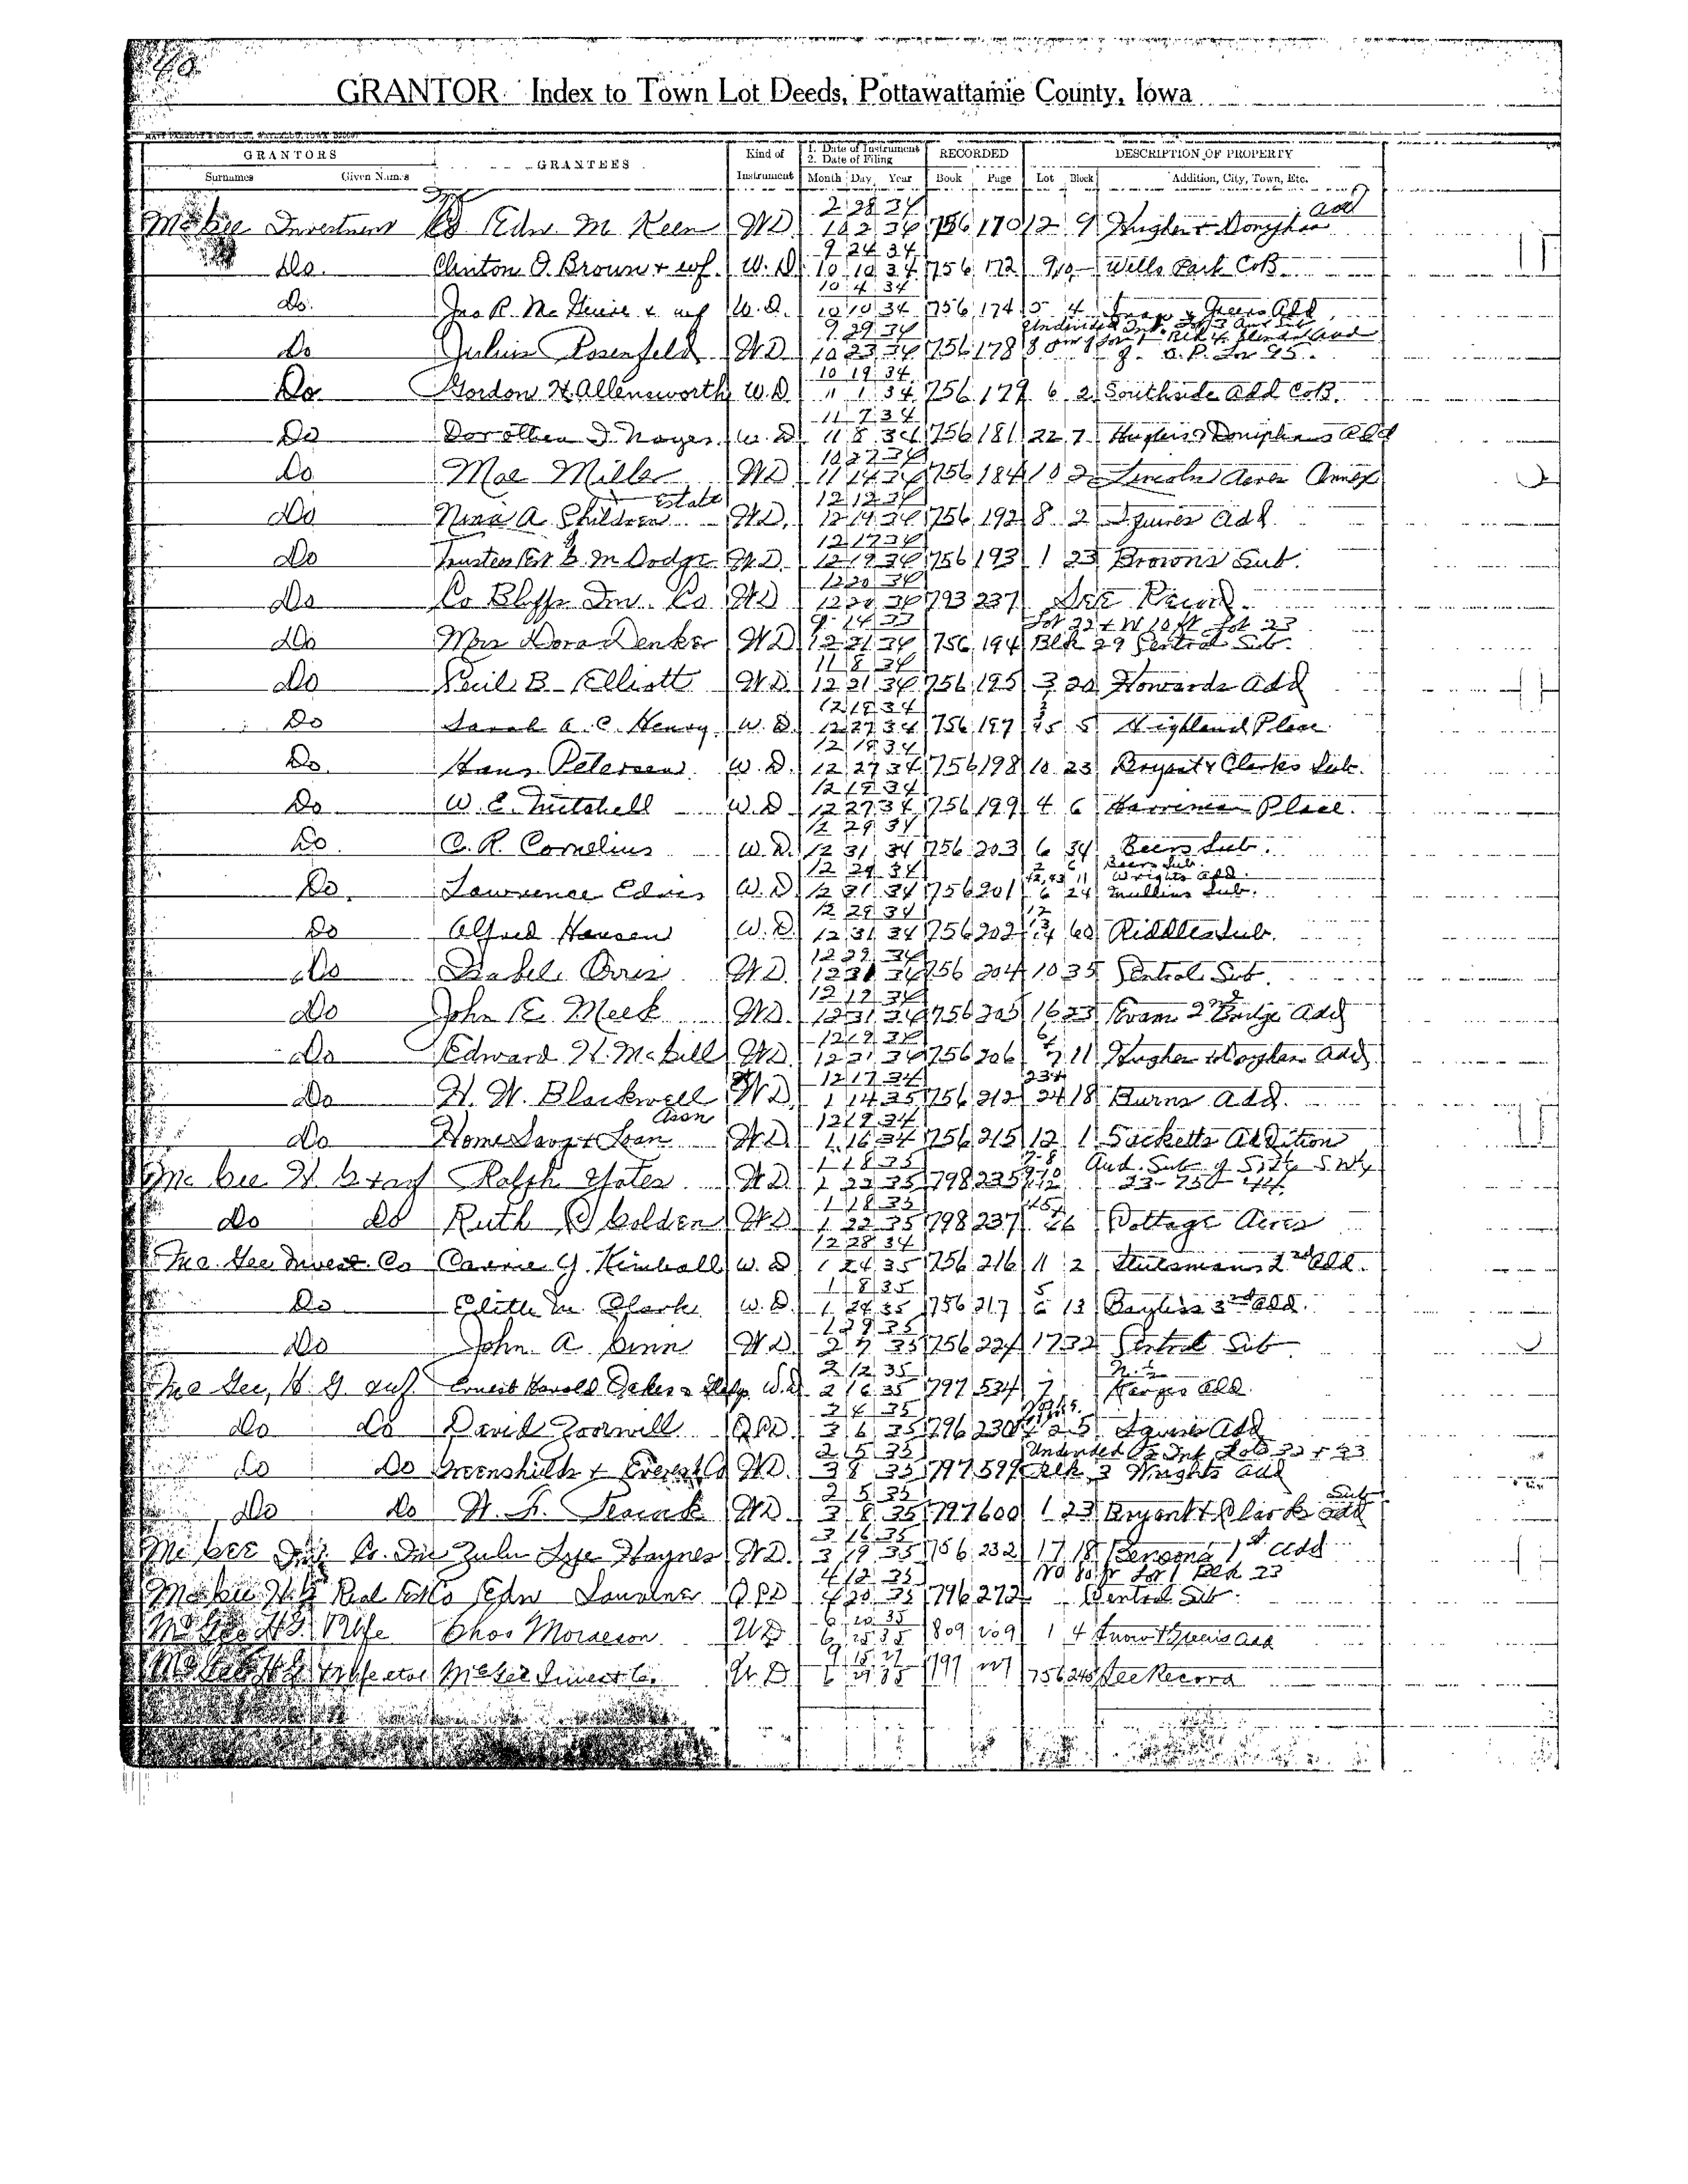 40
GRANTOR Index to Town Lot Deeds, Pottawattamie County, Iowa
MATT PARROTT & SONS CO., WATERLOO, IOWA
GRANTORS GRANTEES Kind of Instrument 1. Date of Instrument 2. Date of Filing RECORDED DESCRIPTION OF PROPERTY
Surnames Given Names Month Day Year Book Page Lot Block Addition, City, Town, Etc.
Inc 2 28 34 Add
McGee Investment Co Edw M Keen WD 10 2 34 756 170 12 9 Hughes + Doniphan
9 24 34
Do Clinton O. Brown + wf. W.D. 10 10 34 756 172 9 10 - Wells Park C.B.
10 4 34
do. Jno R. McGuire & wf W.D. 10 10 34 756 174 5 4 Snow & Greens Add
9 29 34 Undivided Int.
Do Julius Rosenfeld WD 10 23 34 756 178
10 19 34
Do Gordon H. Allensworth W.D. 11 1 34 756 179 6 2 Southside Add C.B.
11 7 34
Do Dorothea I. Noyes W.D. 11 8 34 756 181 22 7 Hughes & Doniphans Add
10 27 34
Do Mae Mills WD 11 14 34 756 184 10 2 Lincoln Acres Annex
Estate 12 12 34
Do Nina A. Children WD. 12 14 34 756 192 8 2 Squires Add.
12 17 34
Do Trustees Est G. M Dodge WD. 12 19 34 756 193 1 23 Browns Sub.
12 20 34
Do Co Bluffs Inv. Co WD 12 20 34 793 237 See Record
9 14 33 Lot 22 + W 10 ft Lot 23
Do Mrs Dora Denker WD 12 21 34 756 194 Blk 29 Central Sub.
11 8 34
Do Ceil B. Elliott WD 12 21 34 756 195 3 20 Howards Add
12 19 34
Do Sarah A. C. Henry W.D. 12 27 34 756 197 5 Highland Place
12 19 34
Do Hans Petersen W.D. 12 27 34 756 198 10 23 Bryant & Clarks Sub.
12 19 34
Do W. E. Mitchell W.D 12 27 34 756 199 4 6 Harriman Place.
12 29 34
Do. C. R. Cornelius W.D. 12 31 34 756 203 6 34 Beers Sub.
12 29 34 Beers Sub. Wrights Add.
Do. Lawrence Edvis W.D 12 31 34 756 201 6 24 Mullins Sub.
12 29 34 12
Do Alfred Hansen W.D. 12 31 34 756 202 13 14 60 Riddles Sub.
12 29 34
Do Isabel Orris WD. 12 31 34 756 204 10 35 Central Sub.
12 19 34
Do John E. Meek WD. 12 31 34 756 205 16 23 Evans 2nd Bridge Add
12 19 34 6
Do Edward H. McGill WD 12 31 34 756 206 7 11 Hughes & Doniphan Add
12 17 34 23+
Do H. W. Blackwell WD. 1 14 35 756 212 24 18 Burns Add.
Assn 12 19 34
do Home Savgs + Loan WD. 1 16 34 756 215 12 1 Sacketts Addition
1 18 35 7-8 Aud. Sub. of
McGee H G + wf Ralph Yates WD 1 22 35 798 235 23-75-44
1 18 35
do do Ruth C Golden WD 1 22 35 798 237 26 Cottage Acres
12 28 34
McGee Invest. Co Carrie Y. Kimball W.D 1 24 35 756 216 11 2 Stutsmans 2nd Add.
1 8 35 5
Do Edith M. Clark W.D. 1 24 35 756 217 6 13 Bayliss 3rd Add.
1 29 35
Do John A. Ginn WD 2 7 35 756 224 17 32 Central Sub
2 12 35 N. ½
McGee, H. G. wf. Ernest Harold Oakes & W.D 2 16 35 797 534 7 Karges Add.
3 4 35
do do David Zoorwill QCD 3 6 35 796 230 5 Squires Add
2 5 35 Undivided Int Lots 32 + 33
Do Do Greenshields + Everest Co WD. 3 8 35 797 599 Blk 3 Wrights Add
2 5 35 Sub
do do WD. 3 8 35 797 600 1 23 Bryant & Clarks Add
3 16 35
McGee Inv. Co. Inc Zulu Lye Haynes WD. 3 19 35 756 232 17 18 Bensons 1st Add
4 12 35 No 80 ft Lot 1 Blk 23
McGee H. G Real Est Co Edw QCD 4 20 35 796 272 Central Sub.
6 20 35
McGee H.G. Wife Chas Moraeson WD 6 25 35 809 209 1 4 Snow & Greens Add
9 15 27
McGee H G & Wife etal McGee Invest Co. W D 6 29 35 797 756 245 See Record